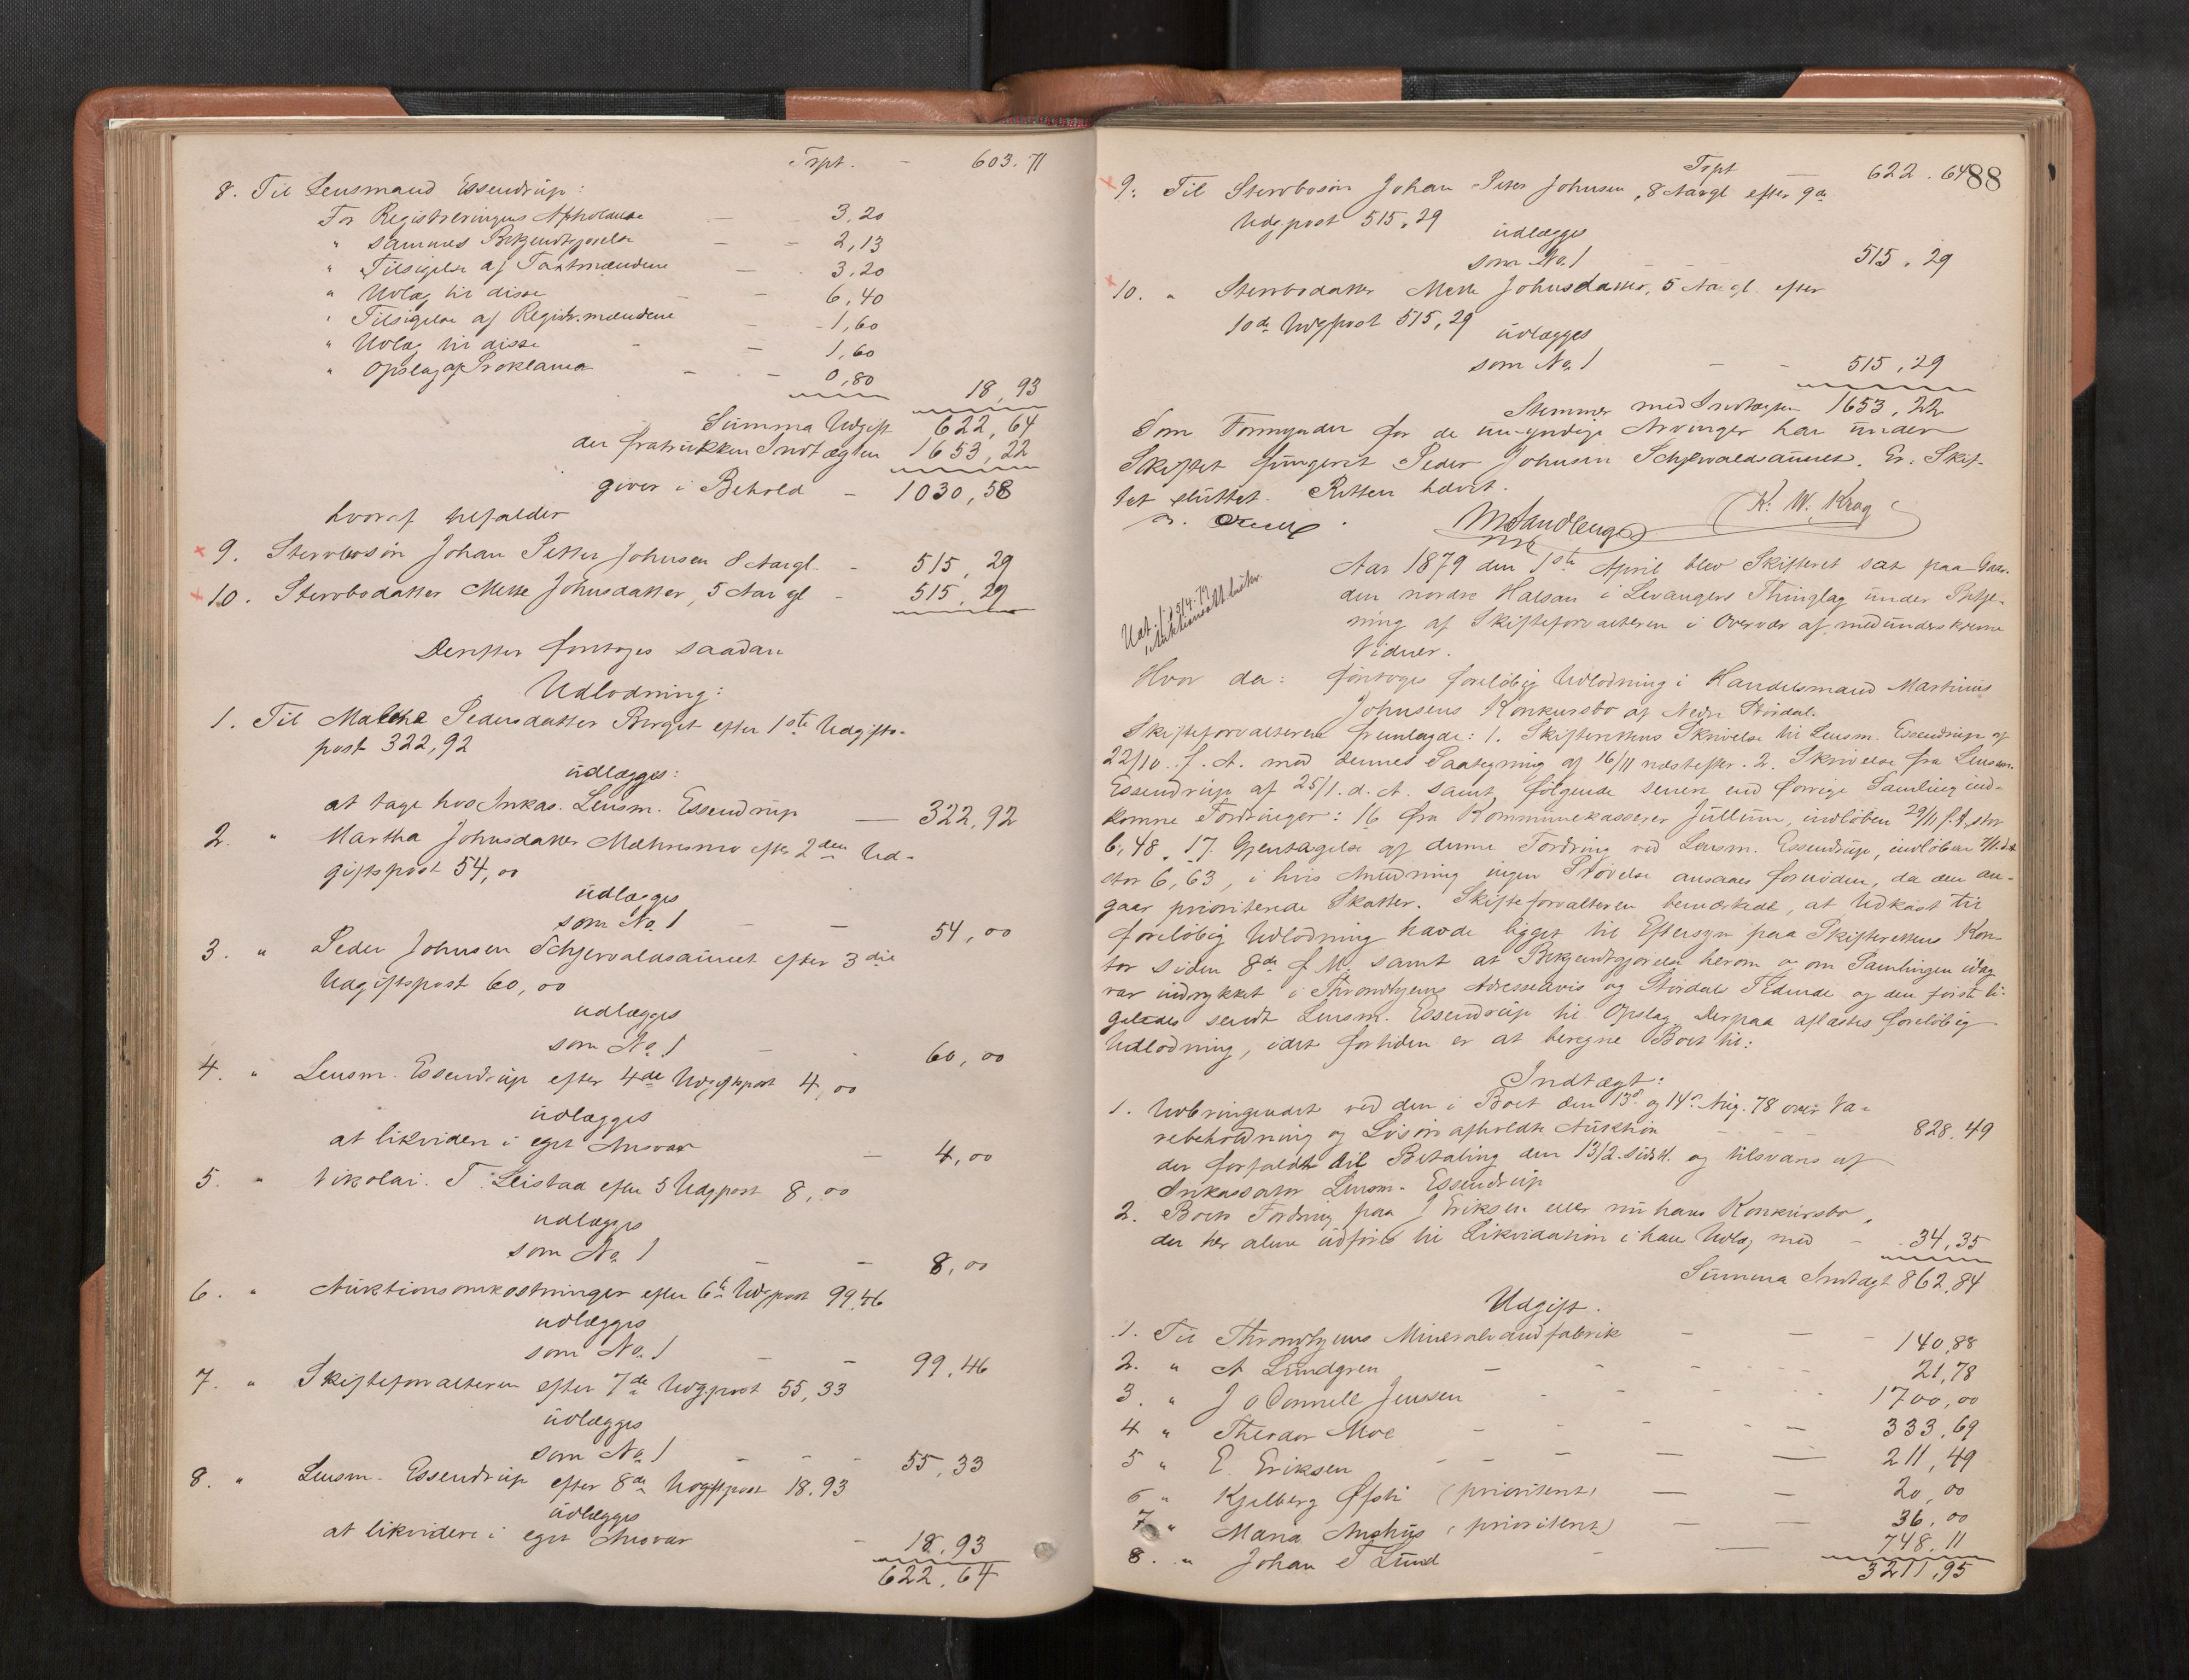 Trpt. - 603.71
8. Til Lensmand Essendrup:
For Registreringens Afholdelse — 3,20
" sammes Bekjendtgjørelse - - 2,13
" Tilsigelse af Taxtmændene — 3,20
" Udlæg til disse - 6,40
" Tilsigelse af Registr.mændene - 1,60
" Udlæg til disse - — 1,60
" Opslag af Proklama - - 0,80 18,93
Summa Udgift 622,64
der fratrukken Indtægten 1653,22
giver i Behold - 1030,58
hvoraf tilfalder
9. Stervbosøn Johan Petter Johnsen 8 Aar gl. - 515,29
10. Stervbodatter Mette Johnsdatter, 5 Aar gl - 515,29
Derefter foretoges saadan
Udlodning:
1. Til Malene Pedersdatter Borget efter 1ste Udgifts-
post 322,92
udlægges:
at tage hos Inkas. Lensm. Essendrup — 322,92
2. " Martha Johnsdatter efter 2den Ud-
giftspost 54,00
udlægges
som No. 1 - — 54,00
3. " Peder Johnsen Schjervaldsaunet efter 3die
Udgiftspost 60,00
udlægges
som No. 1 — - 60,00
4. " Lensm. Essendrup efter 4de Udgiftspost 4,00
udlægges
at likvidere i eget Ansvar — 4,00
5. " Nikolai T. Leistad efter 5 Udgpost 8,00
udlægges
som No. 1 — — 8,00
6. " Auktionsomkostninger efter 6te Udgpost 99,46
udlægges
som No. 1 — — 99,46
7. " Skifteforvalteren efter 7de Udgpost 55,33
udlægges
som No. 1 - - - 55,33
8. " Lensm. Essendrup efter 8de Udgiftspost 18.93
udlægges
at likvidere i eget Ansvar - 18,93
622,64
Trpt 622.64 88
9. Til Stervbosøn Johan Peter Johnsen, 8 Aar gl efter 9de
Udgpost 515,29
udlægges
som No. 1 - - 515,29
10. " Stervbodatter Mette Johnsdatter, 5 Aar gl. efter
10de Udgpost 515,29
udlægges
som No. 1 - - 515,29
Stemmer med Indtægten 1653,22
Som Formynder for de umyndige Arvinger har under
Skiftet fungeret Peder Johnsen Schjervaldsaunet. Er: Skif-
tet sluttet. Retten hævet.
K. W. Krog
Aar 1879 den 1ste April blev Skifteret sat paa Gaar-
den nordre Halsan i Levangers Thinglag under Betje-
ning af Skifteforvalteren i Overvær af medunderskrevne
Vidner.
Udt. 15/4-79
Hvor da: foretoges foreløbig Udlodning i Handelsmand Martinus
Johnsens Konkursbo af Nedre Størdal.
Skifteforvalteren fremlagde: 1. Skifterettens Skrivelse til Lensm. Essendrup af
22/10 f. A. med dennes Paategning af 16/11 næstefter. 2. Skrivelse fra Lensm.
Essendrup af 25/1. d. A. samt følgende senere end forrige Samling ind-
komne Fordringer: 16 fra Kommunekasserer Jullum, indløben 29/11 f. A. stor
6,48. 17. Gjentagelse af denne Fordring ved Lensm. Essendrup, indløben
stor 6,63, i hvis Anledning ingen Prøvelse ansaaes fornøden, da den an-
gaar prioriterede Skatter. Skifteforvalteren bemærkede, at Udkast til
foreløbig Udlodning havde ligget til Eftersyn paa Skifterettens Kon-
tor siden 8de f. M. samt at Bekjendtgjørelse herom og om Samlingen idag
var indrykket i Throndhjems Adresseavis og Stjørdals Tidende og den første li-
geledes sendt Lensm. Essendrup til Opslag. Derpaa aflæstes foreløbig
Udlodning, idet fortiden er at beregne Boet til:
Indtægt:
1. Udbringendet ved den i Boet den 13de og 14de Aug. 78 over Va-
rebeholdning og Løsøre afholdte Auktion - - - 828,49
der forfaldt til Betaling den 13/2. sidstl. og tilsvares af
Inkassator Lensm. Essendrup
2. Boets Fordring paa J Eriksen eller nu hans Konkursbo,
der her alene udføres til Likvidation i hans Udlæg med - 34,35
Summa Indtægt 862,84
Udgift.
1. Til Throndhjems Mineralvandfabrik - — - 140,88
2. " A Lundgren — - - - 21,78
3. " J O Connell Jenssen - - - 1700,00
4 " Theodor Moe - - - — 333,69
5 " E. Eriksen - - — — 211,49
6 " Kjelberg Øfsti (prioriteret) — — 20,00
7 " Maria Aurhus (prioriteret) — — 36,00
8. " Johan T Lund - — 748,11
3211,95